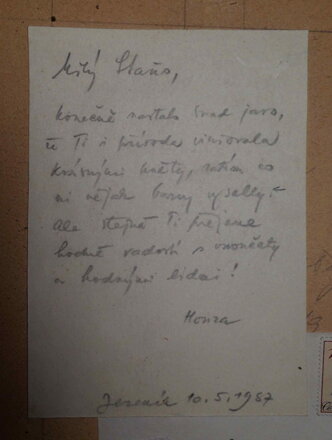 Milý Staňo,
konečně nastalo snad jaro,
Ti i příroda vinšovala
krásnými květy, zatím co
mi nějak barvy vyschly.
Ale stejně Ti přejeme
hodně radosti s vnoučaty
a hodnými lidmi!
Honza
Jeseník 10.5.1987